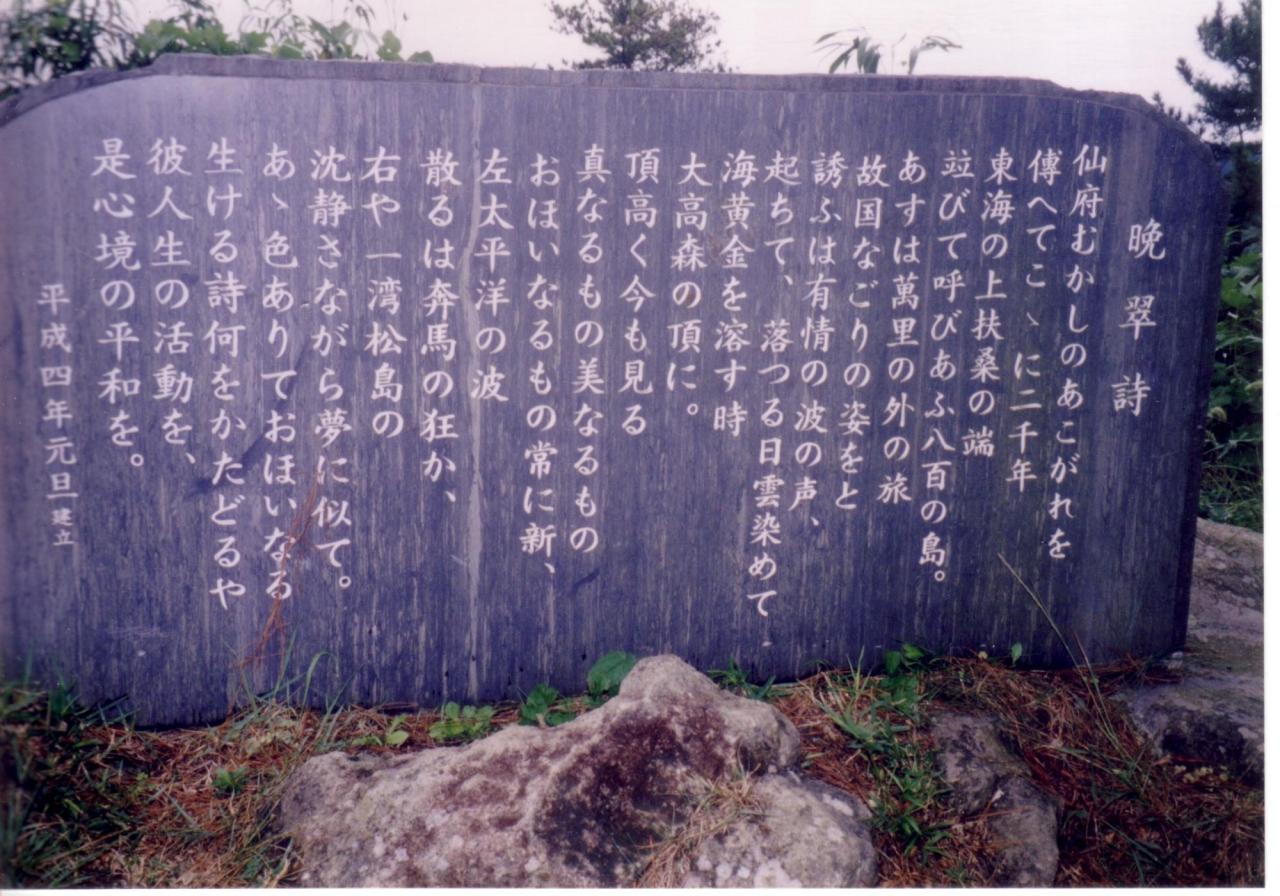 晩翠詩
仙府むかしのあこがれを
傳へてこゝに二千年
東海の上扶桑の端
竝びて呼びあふ八百の島。
あすは萬里の外の旅
故国なごりの姿をと
誘ふは有情の波の声、
起ちて、落つる日雲染めて
海黄金を溶す時
大高森の頂に。
頂高く今も見る
真なるもの美なるもの
おほいなるもの常に新、
左太平洋の波
散るは奔馬の狂か、
右や一湾松島の
沈静さながら夢に似て。
あゝ色ありておほいなる
生ける詩何をかたどるや
彼人生の活動を、
是心境の平和を。
平成四年元旦建立